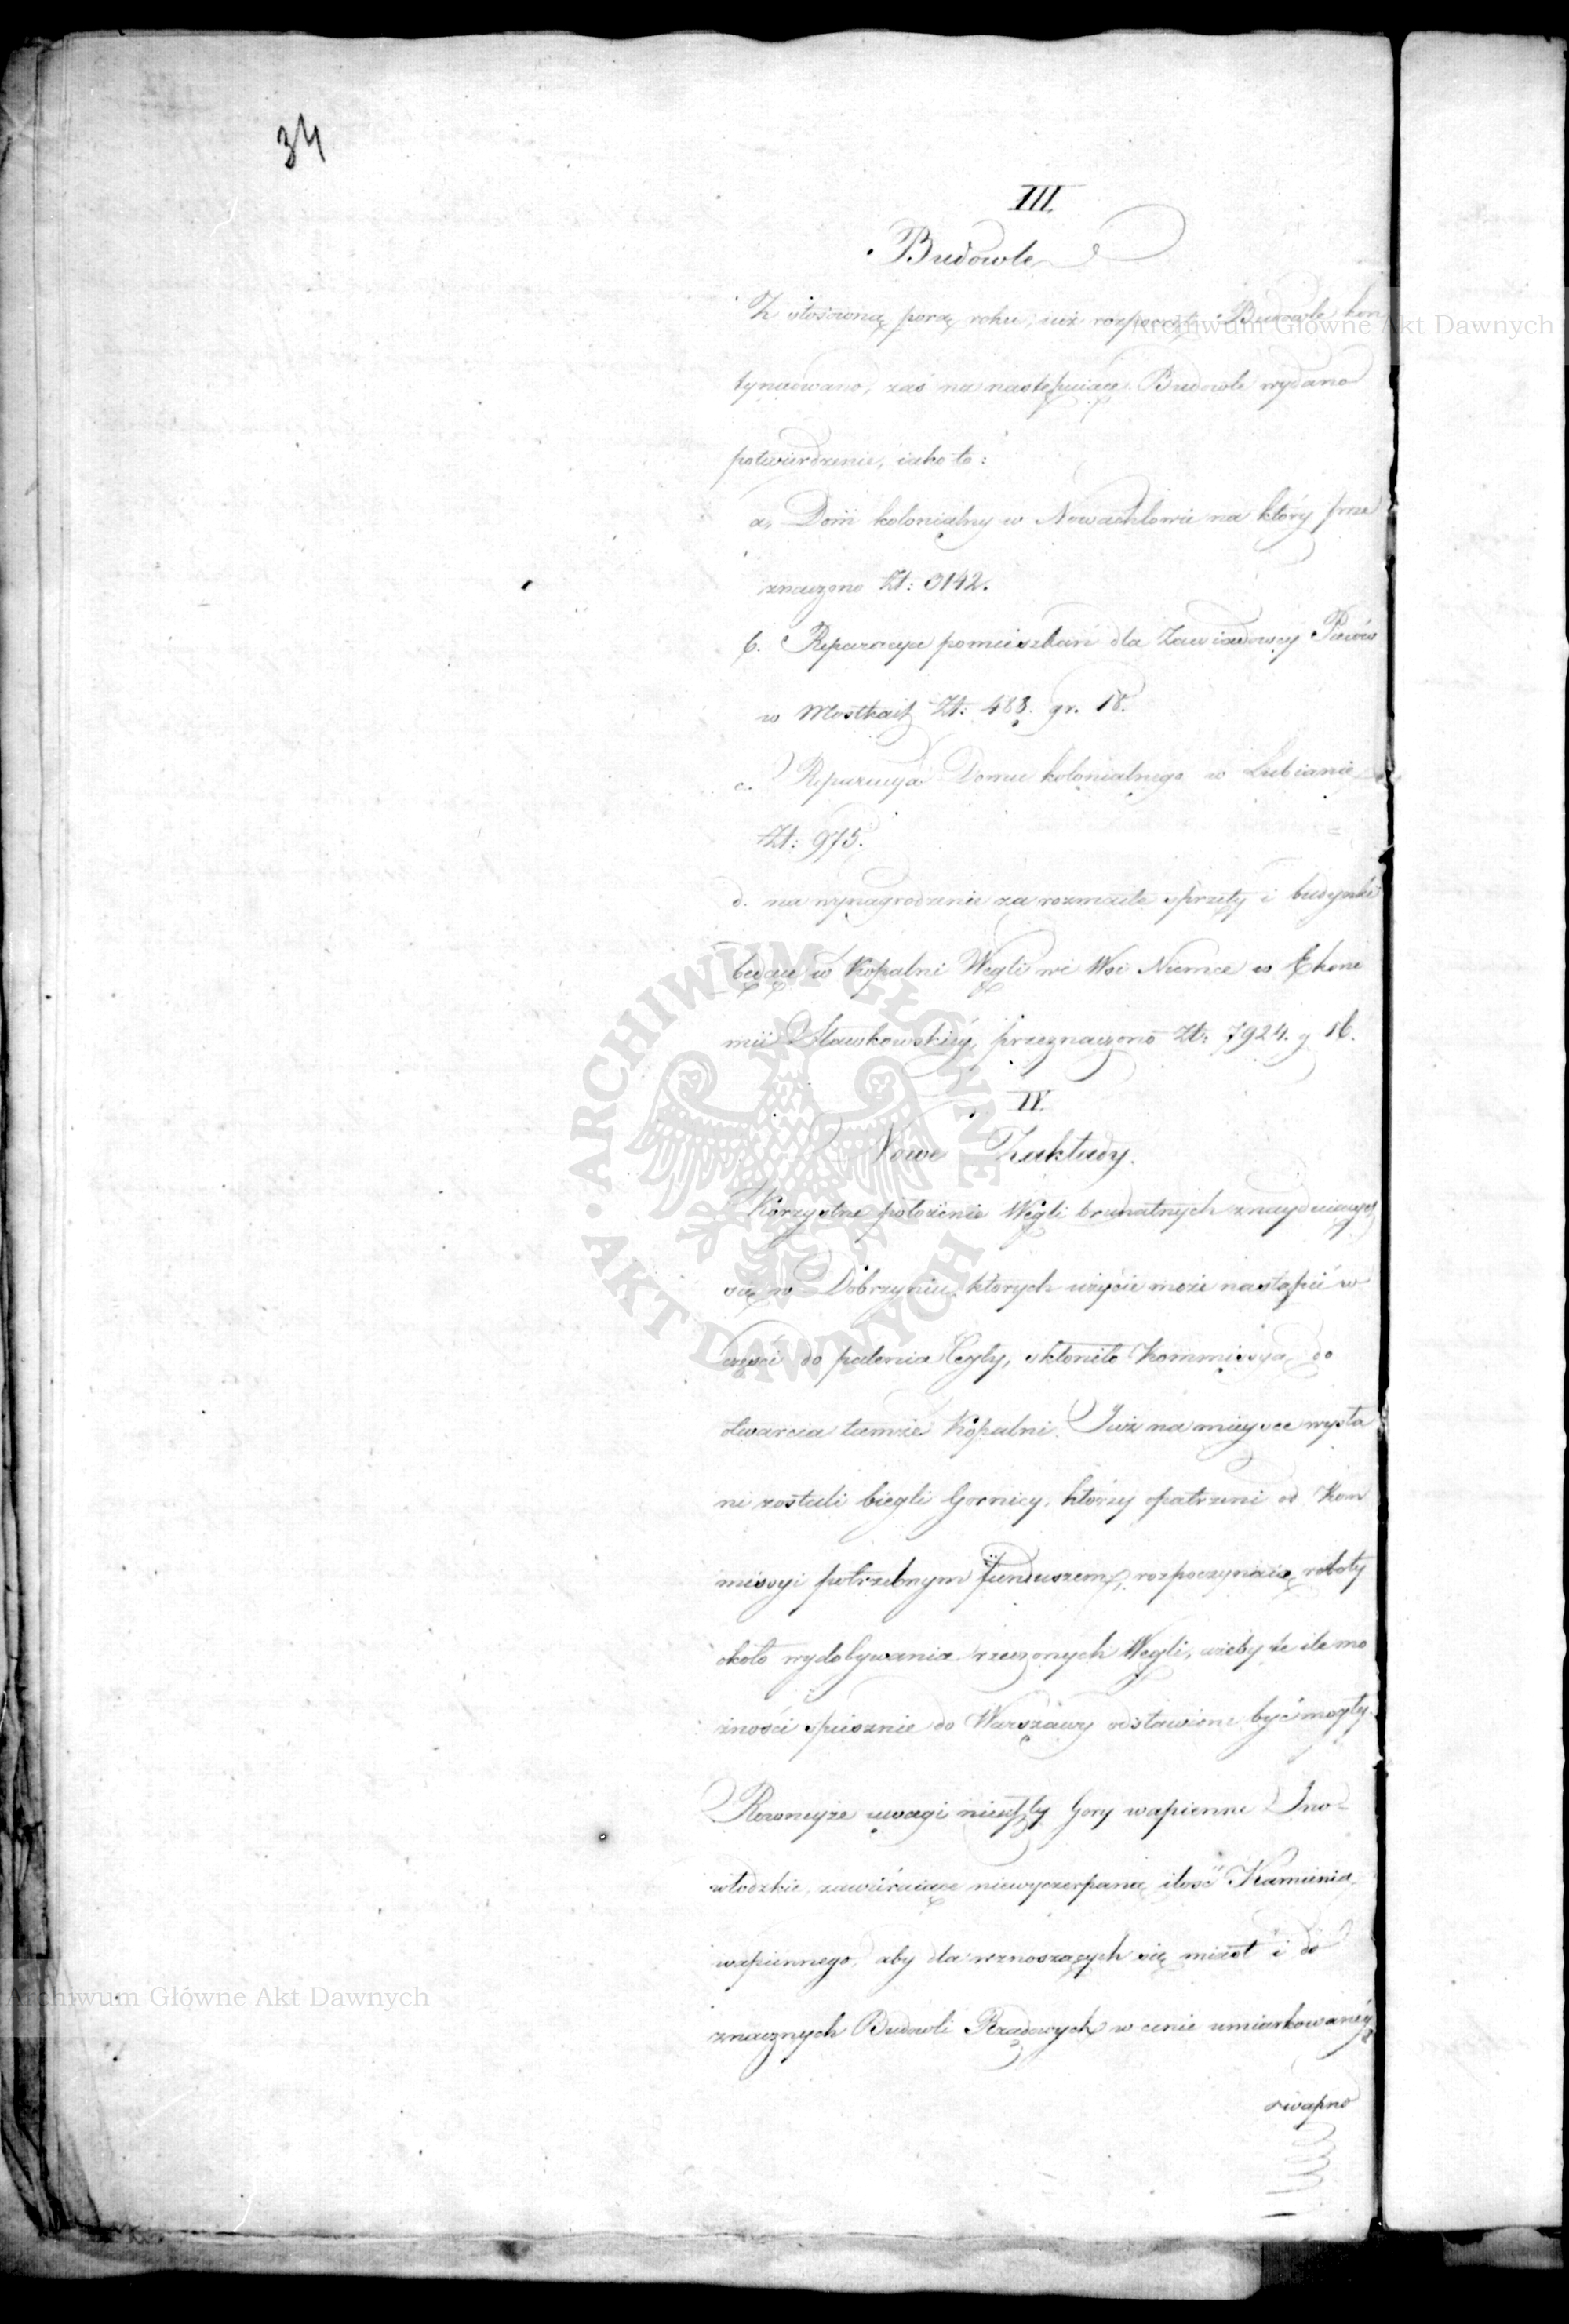 34
III.
Budowle
Z stosowną porą roku, iuż rozpoczęte Budowle kon
tynuowano, zaś na następuiące Budowle wydano
potwierdzenie, iako to:
a, Dom kolonialny w Nowachłowie na który prze
znaczono Zł: 3142.
b. Reparacye pomieszkań dla Zawiadowcy Pieców
w Mostkach Zł: 488. gr. 18.
c. Reparacya Domu kolonialnego w Łubianie
Zł: 975.
d. na wynagrodzenie za rozmaite sprzęty i budynki
będące w Kopalni Węgli we Wsi Niemce w Ekono
mii Sławkowskiéy, przeznaczono Zł: 7924. g 16.
IV.
Nowe Zakłady.
Korzystne położenie Węgli brunatnych znayduiących
się w Dobrzyniu, których użycie może nastąpić w
części do palenia Cegły, skłoniło Kommissyą do
otwarcia tamże Kopalni. Iuż na mieysce wysła
ni zostali biegli Gornicy, którzy opatrzeni od Kom
missyi potrzebnym funduszem, rozpoczynaią roboty
około wydobywania rzeczonych Węgli, ażeby te ile mo
żności spiesznie do Warszawy odstawione być mogły.
Rowneyże uwagi nieuszły Gory wapienne Ino-
włodzkie, zawieraiące niewyczerpaną ilość Kamienia
wapiennego, aby dla wznoszących się miast i do
znacznych Budowli Rządowych w cenie umiarkowanéy
wapno
Archiwum Główne Akt Dawnych
ARCHIWUM GŁÓWNE
AKT DAWNYCH
Archiwum Główne Akt Dawnych